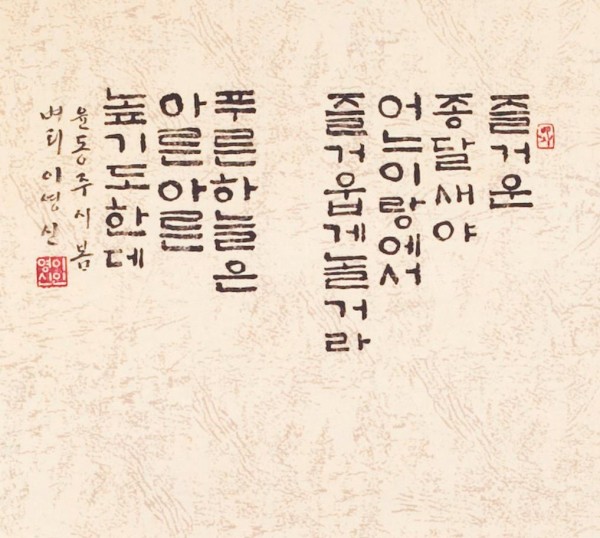 즐거운
종달새야
어느이랑에서
즐거웁게놀거라
푸른하늘은
아른아른
높기도한데
윤동주 시 봄
이영신
이인
영신